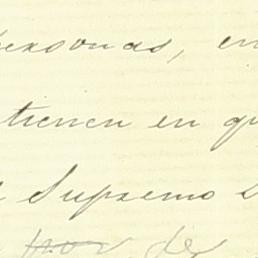 personas, en
tienen en qu
Supremo
por de